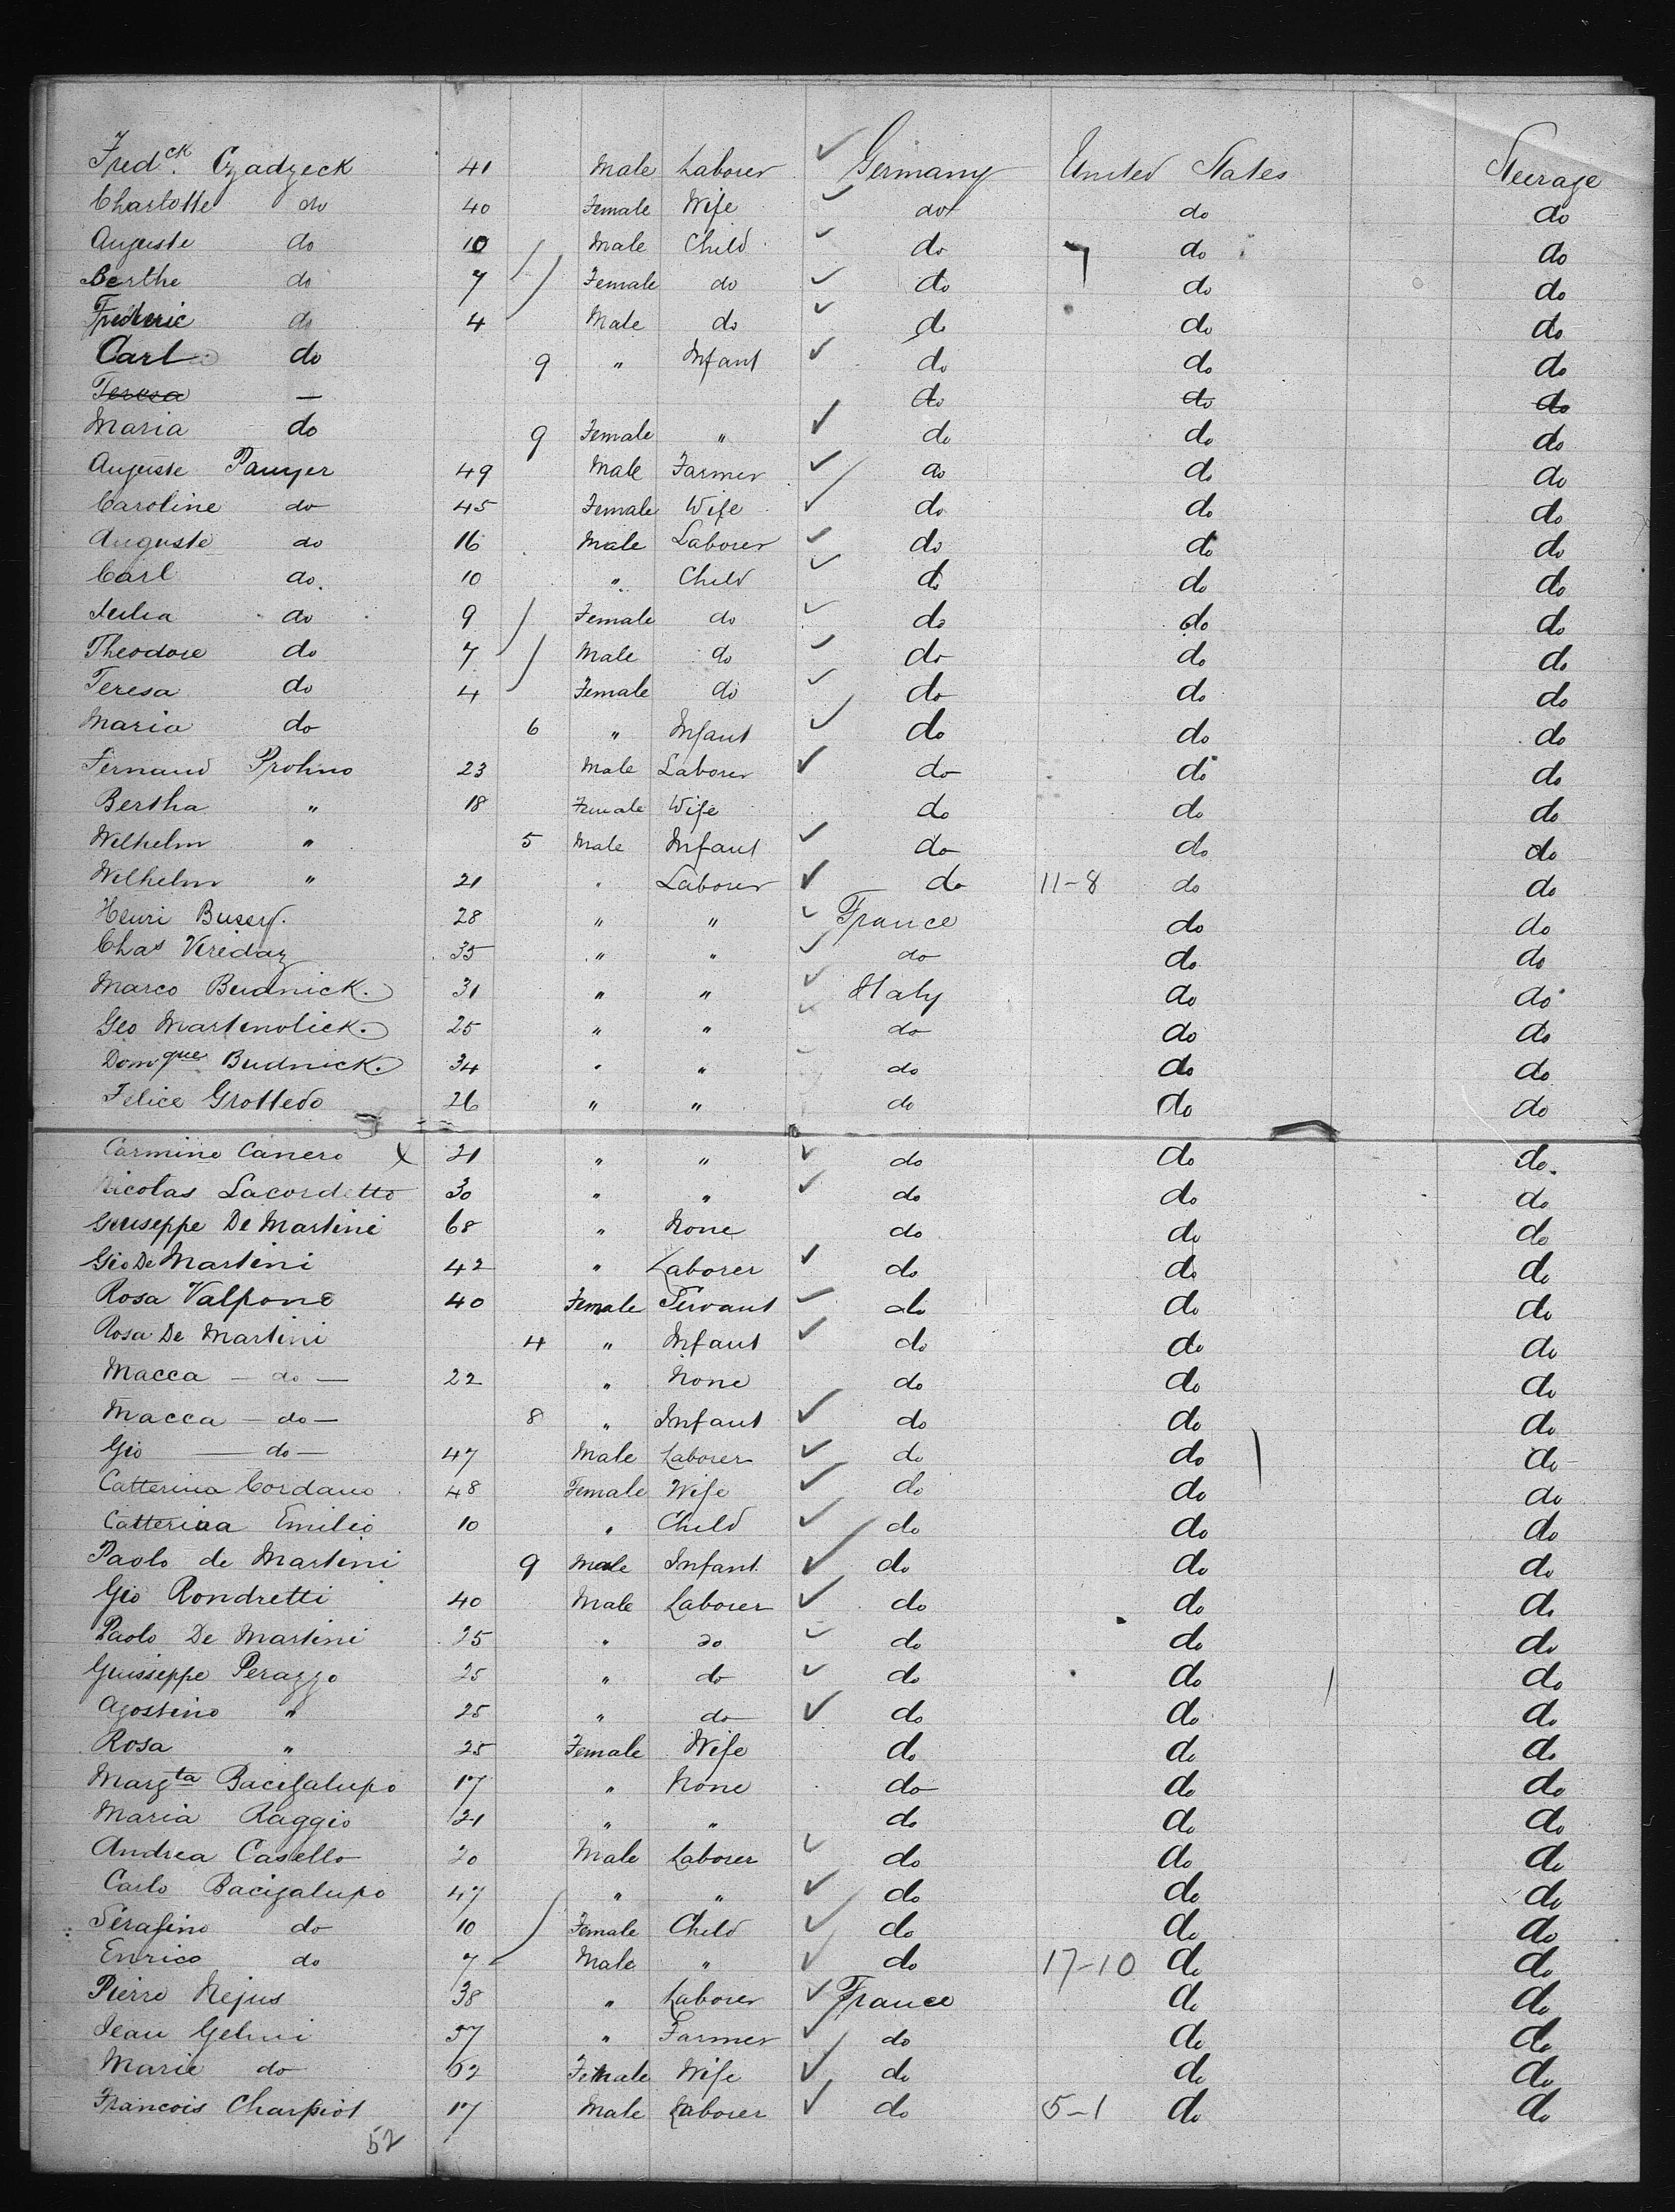 Fredck. Czadzeck 41 Male Laborer Germany United States Steerage
Charlotte do 40 Female Wife do do do
Auguste do 10 Male Child do 7 do do
Berthe do 7 Female do do do do
Frederic do 4 Male do do do do
Carl do 9 " Infant do do do
Teresa — do do do
Maria do 9 Female " do do do
Auguste Panyer 49 Male Farmer do do do
Caroline do 45 Female Wife do do do
Auguste do 16 Male Laborer do do do
Carl do. 10 " Child do do do
Julia do 9 Female do do do do
Theodore do 7 Male do do do do
Teresa do 4 Female do do do do
Maria do 6 " Infant do do do
Fernand Prohno 23 Male Laborer do do do
Bertha " 18 Female Wife do do do
Wilhelm " 5 Male Infant do do do
Wilhelm " 21 " Laborer do 11-8 do do
Henri Busey. 28 " " France do do
Chas Veredaz 35 " " do do do
Marco Budnick. 31 " " Italy do do
Geo Martinolick. 25 " " do do do
Domque Budnick. 34 " " do do do
Felice Grottedo 26 " " do do do
Carmino Canero x 21 " " do do do.
Nicolas Lacordetto 30 " " do do do
Giuseppe De Martini 68 " None do do do
Gio De Martini 42 " Laborer do do do
Rosa Valpone 40 Female Servant do do do
Rosa De Martini 4 " Infant do do do
Macca — do — 22 " None do do do
Macca — do — 8 " Infant do do do
Gio — do — 47 Male Laborer do do do
Catterina Cordano 48 Female Wife do do do
Catterina Emilio 10 " Child do do do
Paolo de Martini 9 Male Infant do do do
Gio Rondretti 40 Male Laborer do do do
Paolo De Martini 25 " do do do do
Guisseppe Perazzo 25 " do do do do
Agostino " 25 " do do do do
Rosa " 25 Female Wife do do do
Margta Bacigalupo 17 " None do do do
Maria Raggio 21 " " do do do
Andrea Casello 20 Male Laborer do do do
Carlo Bacigalupo 47 " " do do do
Serafino do 10 Female Child do do do
Enrico do 7 Male " do 17-10 do do
Pierre Nejus 38 " Laborer France do do
Jean Gelmi 57 " Farmer do do do
Marie do 52 Female Wife do do do
Francois Charpiot 17 Male Laborer do 5-1 do do
52